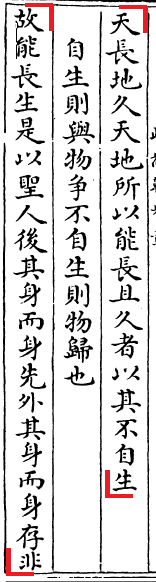 天長地久天地所以能長且久者以其不自生
自生則與物争不自生則物歸也
故能長生是以聖人後其身而身先外其身而身存非